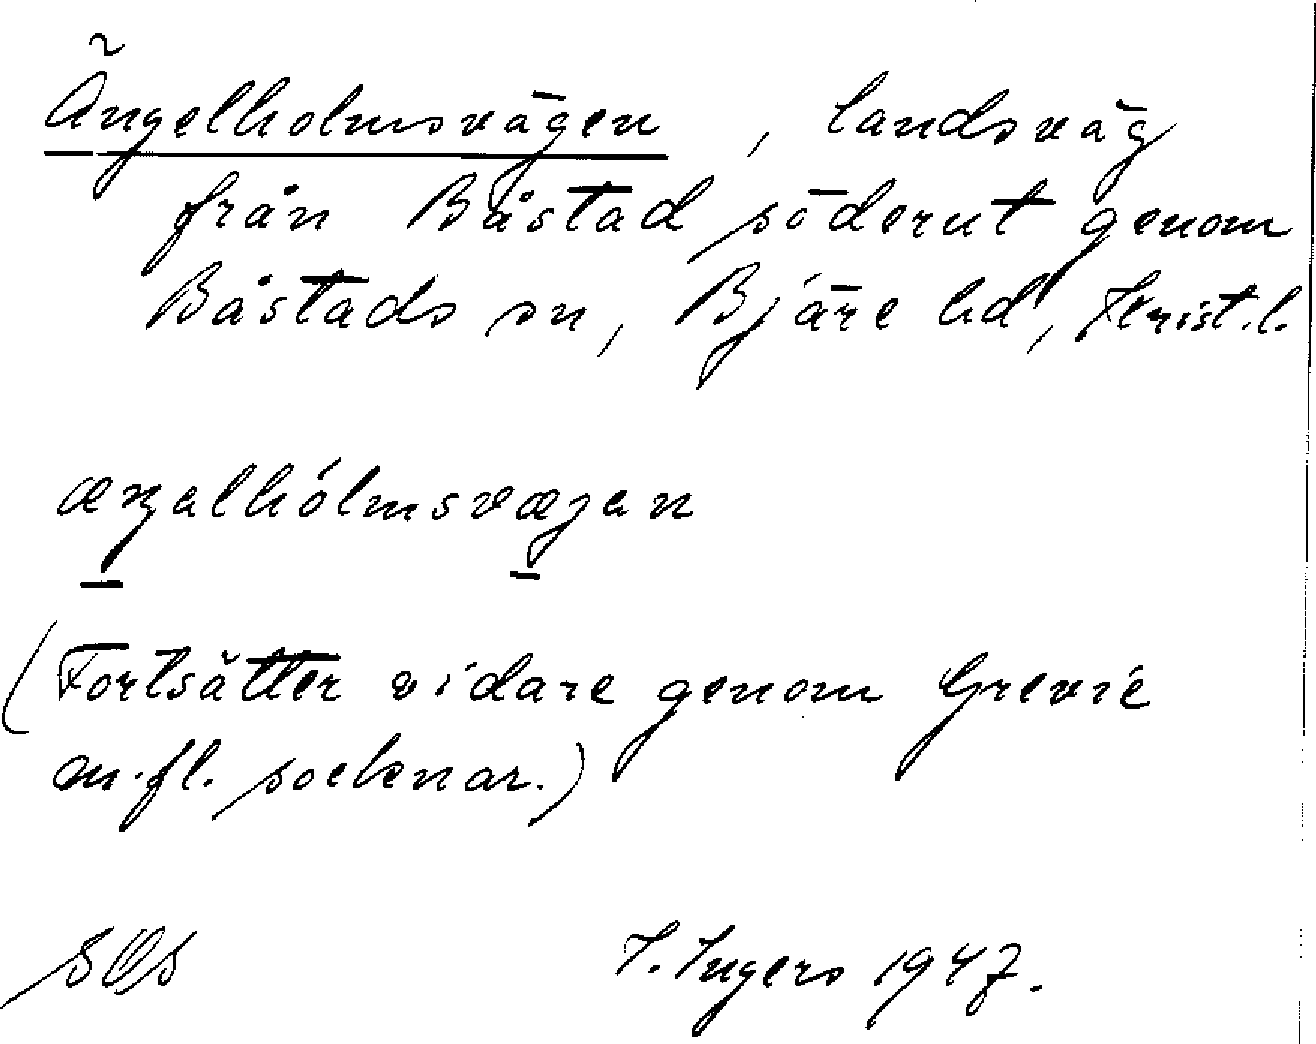 Ängelholmsvägen, landsväg
från Båstad söderut genom
Båstads sn, Bjäre hd, Krist.l.
æŋəlhólmsvæjən
(Fortsätter vidare genom Grevie
m.fl. socknar.)
SOS I. Ingers 1947.